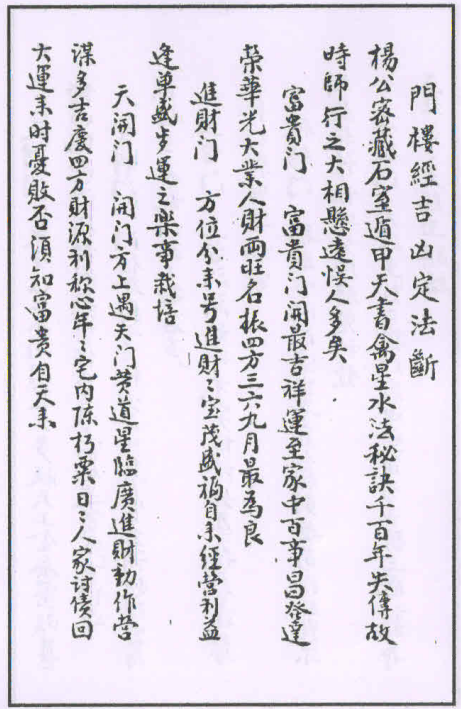 門樓經吉凶定法斷
楊公密藏石室遁甲天書禽星水法秘訣千百年失傳故
時師行之大相懸遠悮人多矣
富貴门 富貴门開最吉祥運至家中百事昌發達
榮華光大業人財兩旺名振四方三六九月最為良
進財门 方位分來号進財〻宝茂盛福自来經营利益
逢卓盛步運之樂事栽培
天開门 開门方上遇天门劳道星臨廣進財動作营
謀多吉慶四方財源利称心年〻宅内陈朽粟日〻人家讨债回
大運未时憂敗否須知富貴自天来